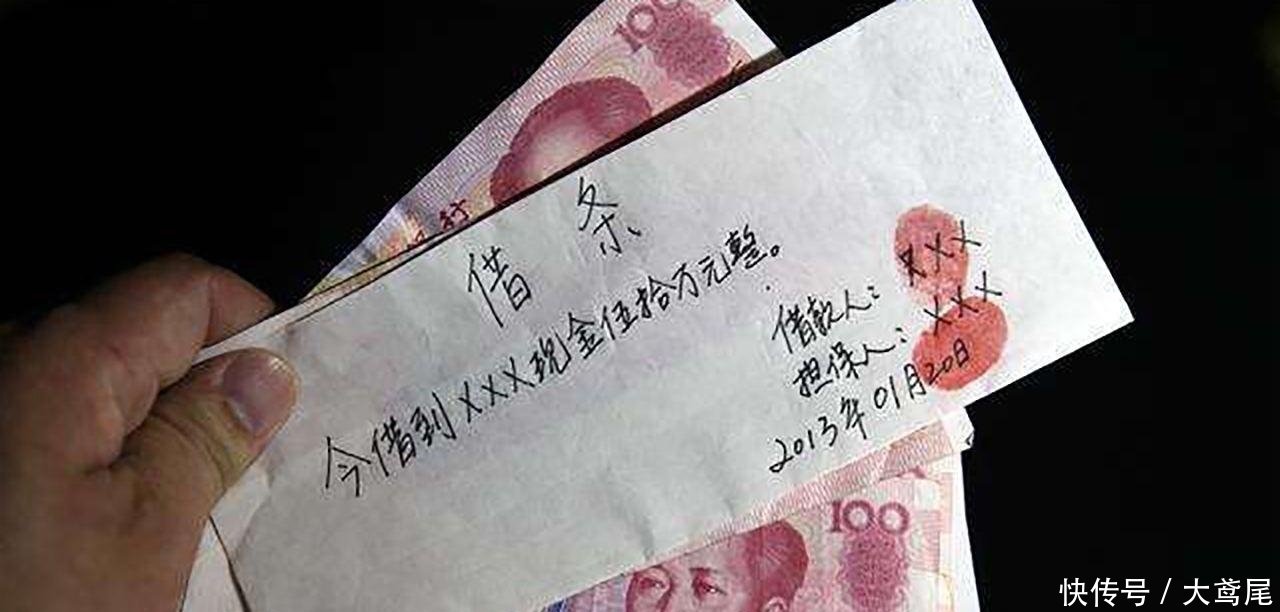 100
行
借条
今借到XXX现金伍拾万元整。
借款人：XXX
担保人：XXX
2013年01月20日
100
快传号 / 大鸢尾